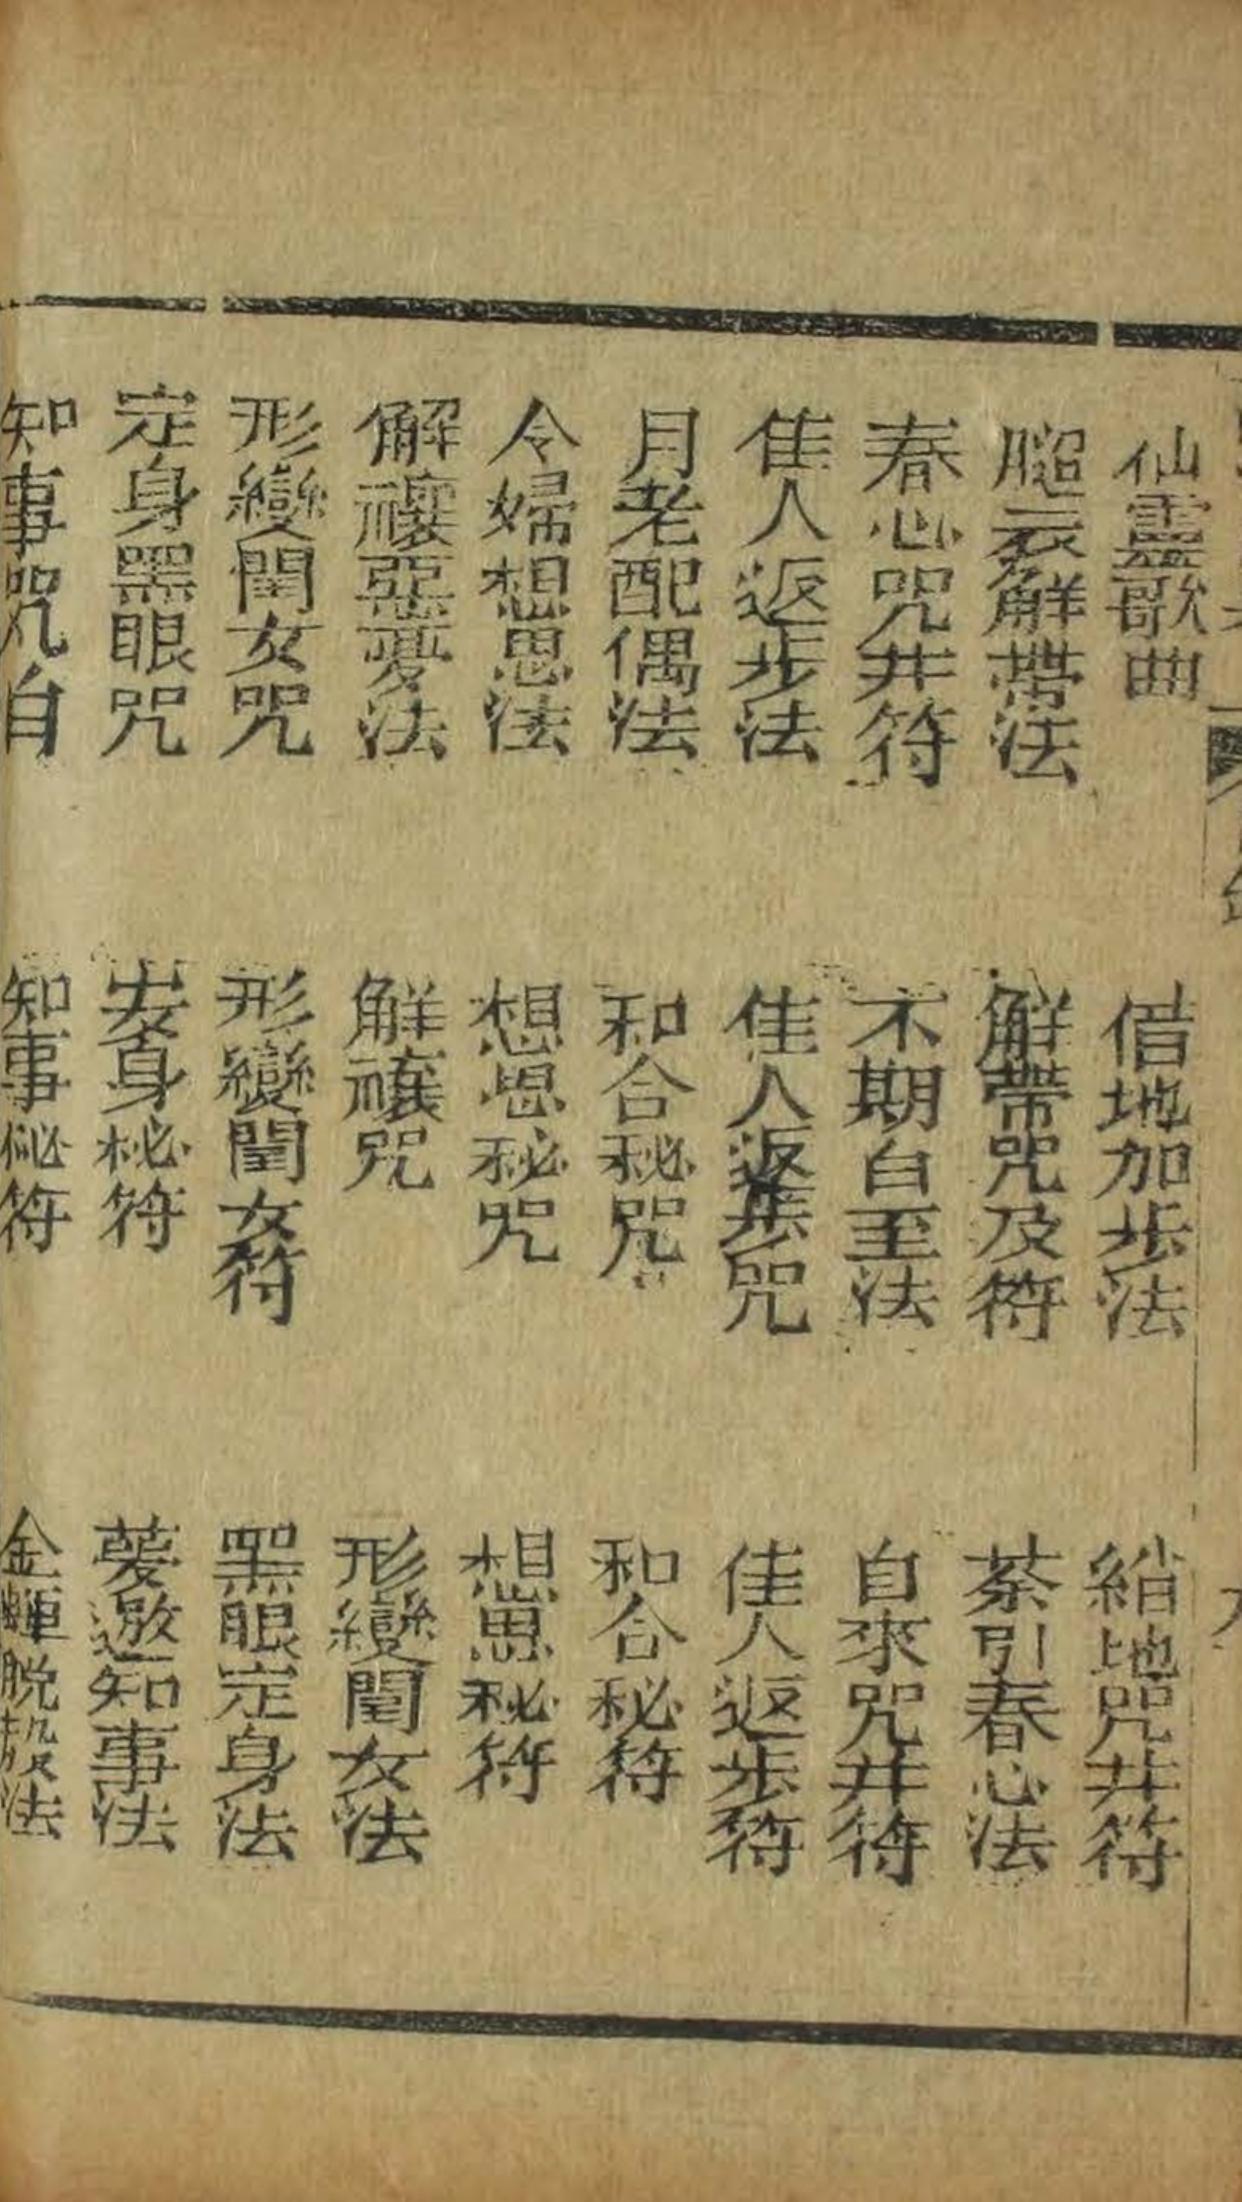 仙靈歌曲　借地加步法　縮地咒并符
腿衣解帶法　解帶咒及符　茶引春心法
春心咒并符　不期自至法　自來咒并符
佳人返步法　佳人返步咒　佳人返步符
月老配偶法　和合秘咒　和合秘符
令婦想思法　想思秘咒　想思秘符
解禳惡憂法　解禳咒　形變閨女法
形變閨女咒　形變閨女符　黑眼定身法
定身黑眼咒　安身秘符　邀知事法
知事咒自　知事秘符　金蟬脫殼法